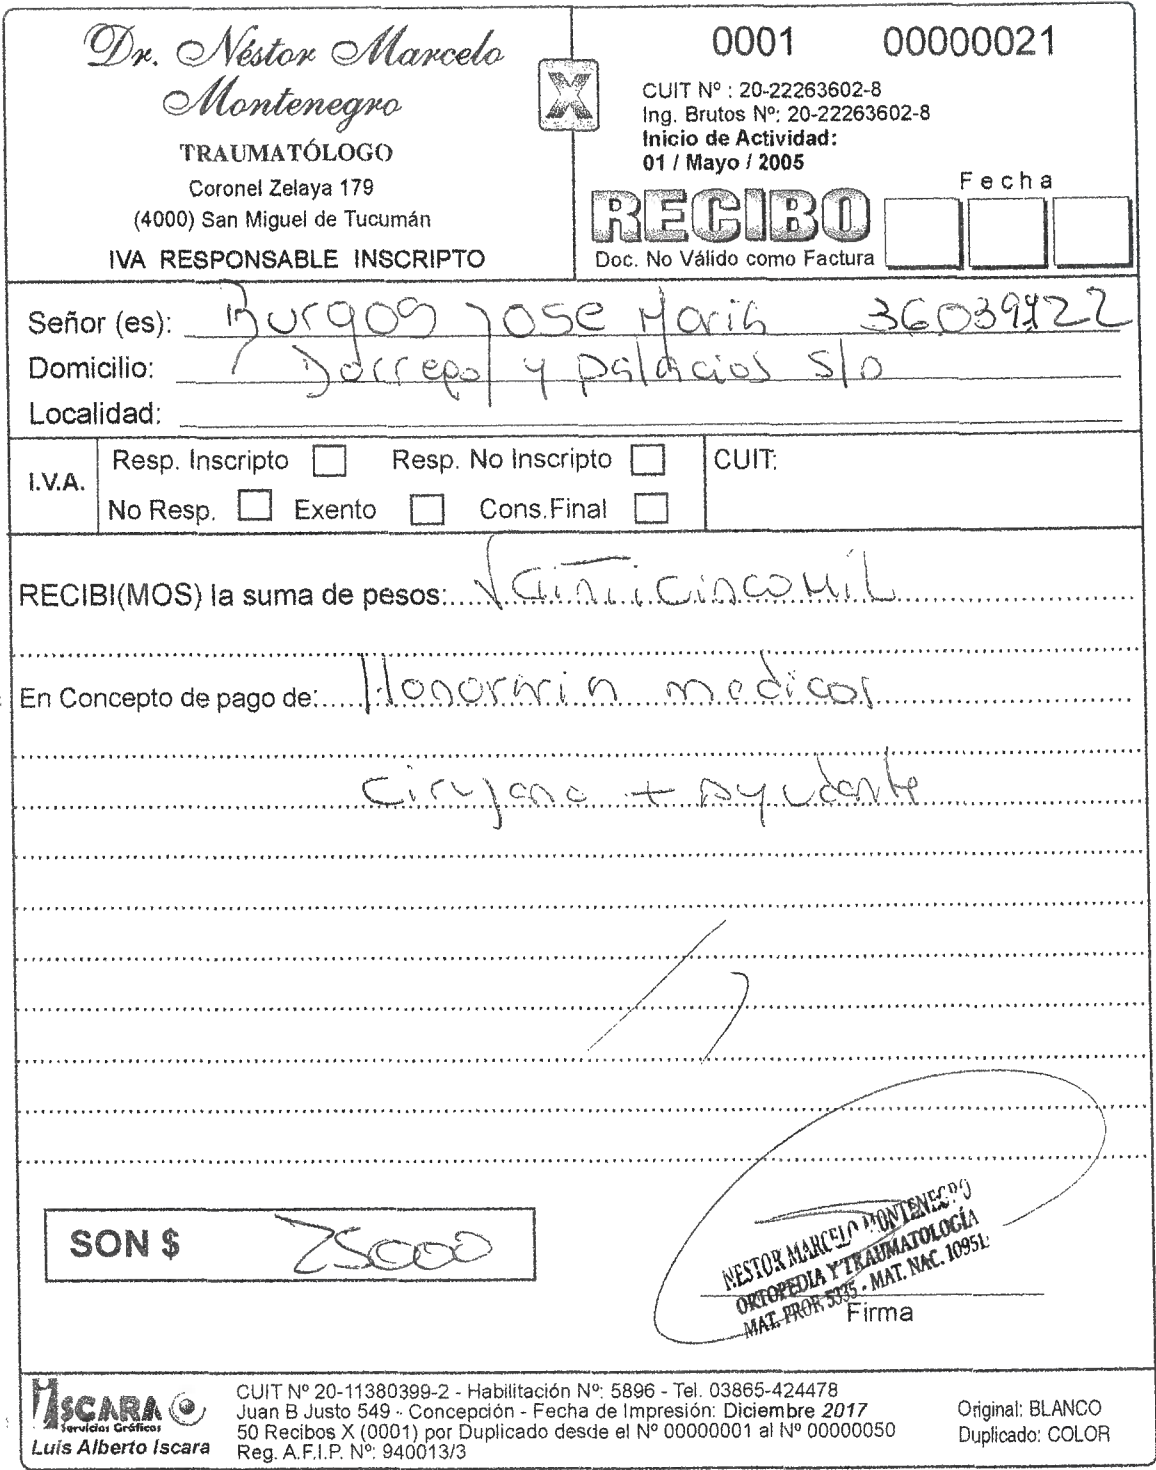 Dr. Néstor Marcelo
Montenegro
TRAUMATÓLOGO
Coronel Zelaya 179
(4000) San Miguel de Tucumán
IVA RESPONSABLE INSCRIPTO
X
0001 00000021
CUIT Nº : 20-22263602-8
Ing. Brutos Nº: 20-22263602-8
Inicio de Actividad:
01 / Mayo / 2005
Fecha
RECIBO
Doc. No Válido como Factura
Señor (es): Burgos Jose Maria
Domicilio: Dorrego y Palacios S/n
Localidad:
I.V.A.
Resp. Inscripto Resp. No Inscripto
No Resp. Exento Cons.Final
CUIT:
RECIBI(MOS) la suma de pesos: Veinticinco Mil
En Concepto de pago de: Honorarin medicos
Cirujano + Ayudante
SON $ 25000
NESTOR MARCELO MONTENEGRO
ORTOPEDIA Y TRAUMATOLOGÍA
MAT. PROF. 5335 - MAT. NAC. 10951
Firma
ISCARA
Servicios Gráficos
Luis Alberto Iscara
CUIT Nº 20-11380399-2 - Habilitación Nº: 5896 - Tel. 03865-424478
Juan B Justo 549 - Concepción - Fecha de Impresión: Diciembre 2017
50 Recibos X (0001) por Duplicado desde el Nº 00000001 al Nº 00000050
Reg. A.F.I.P. Nº: 940013/3
Original: BLANCO
Duplicado: COLOR